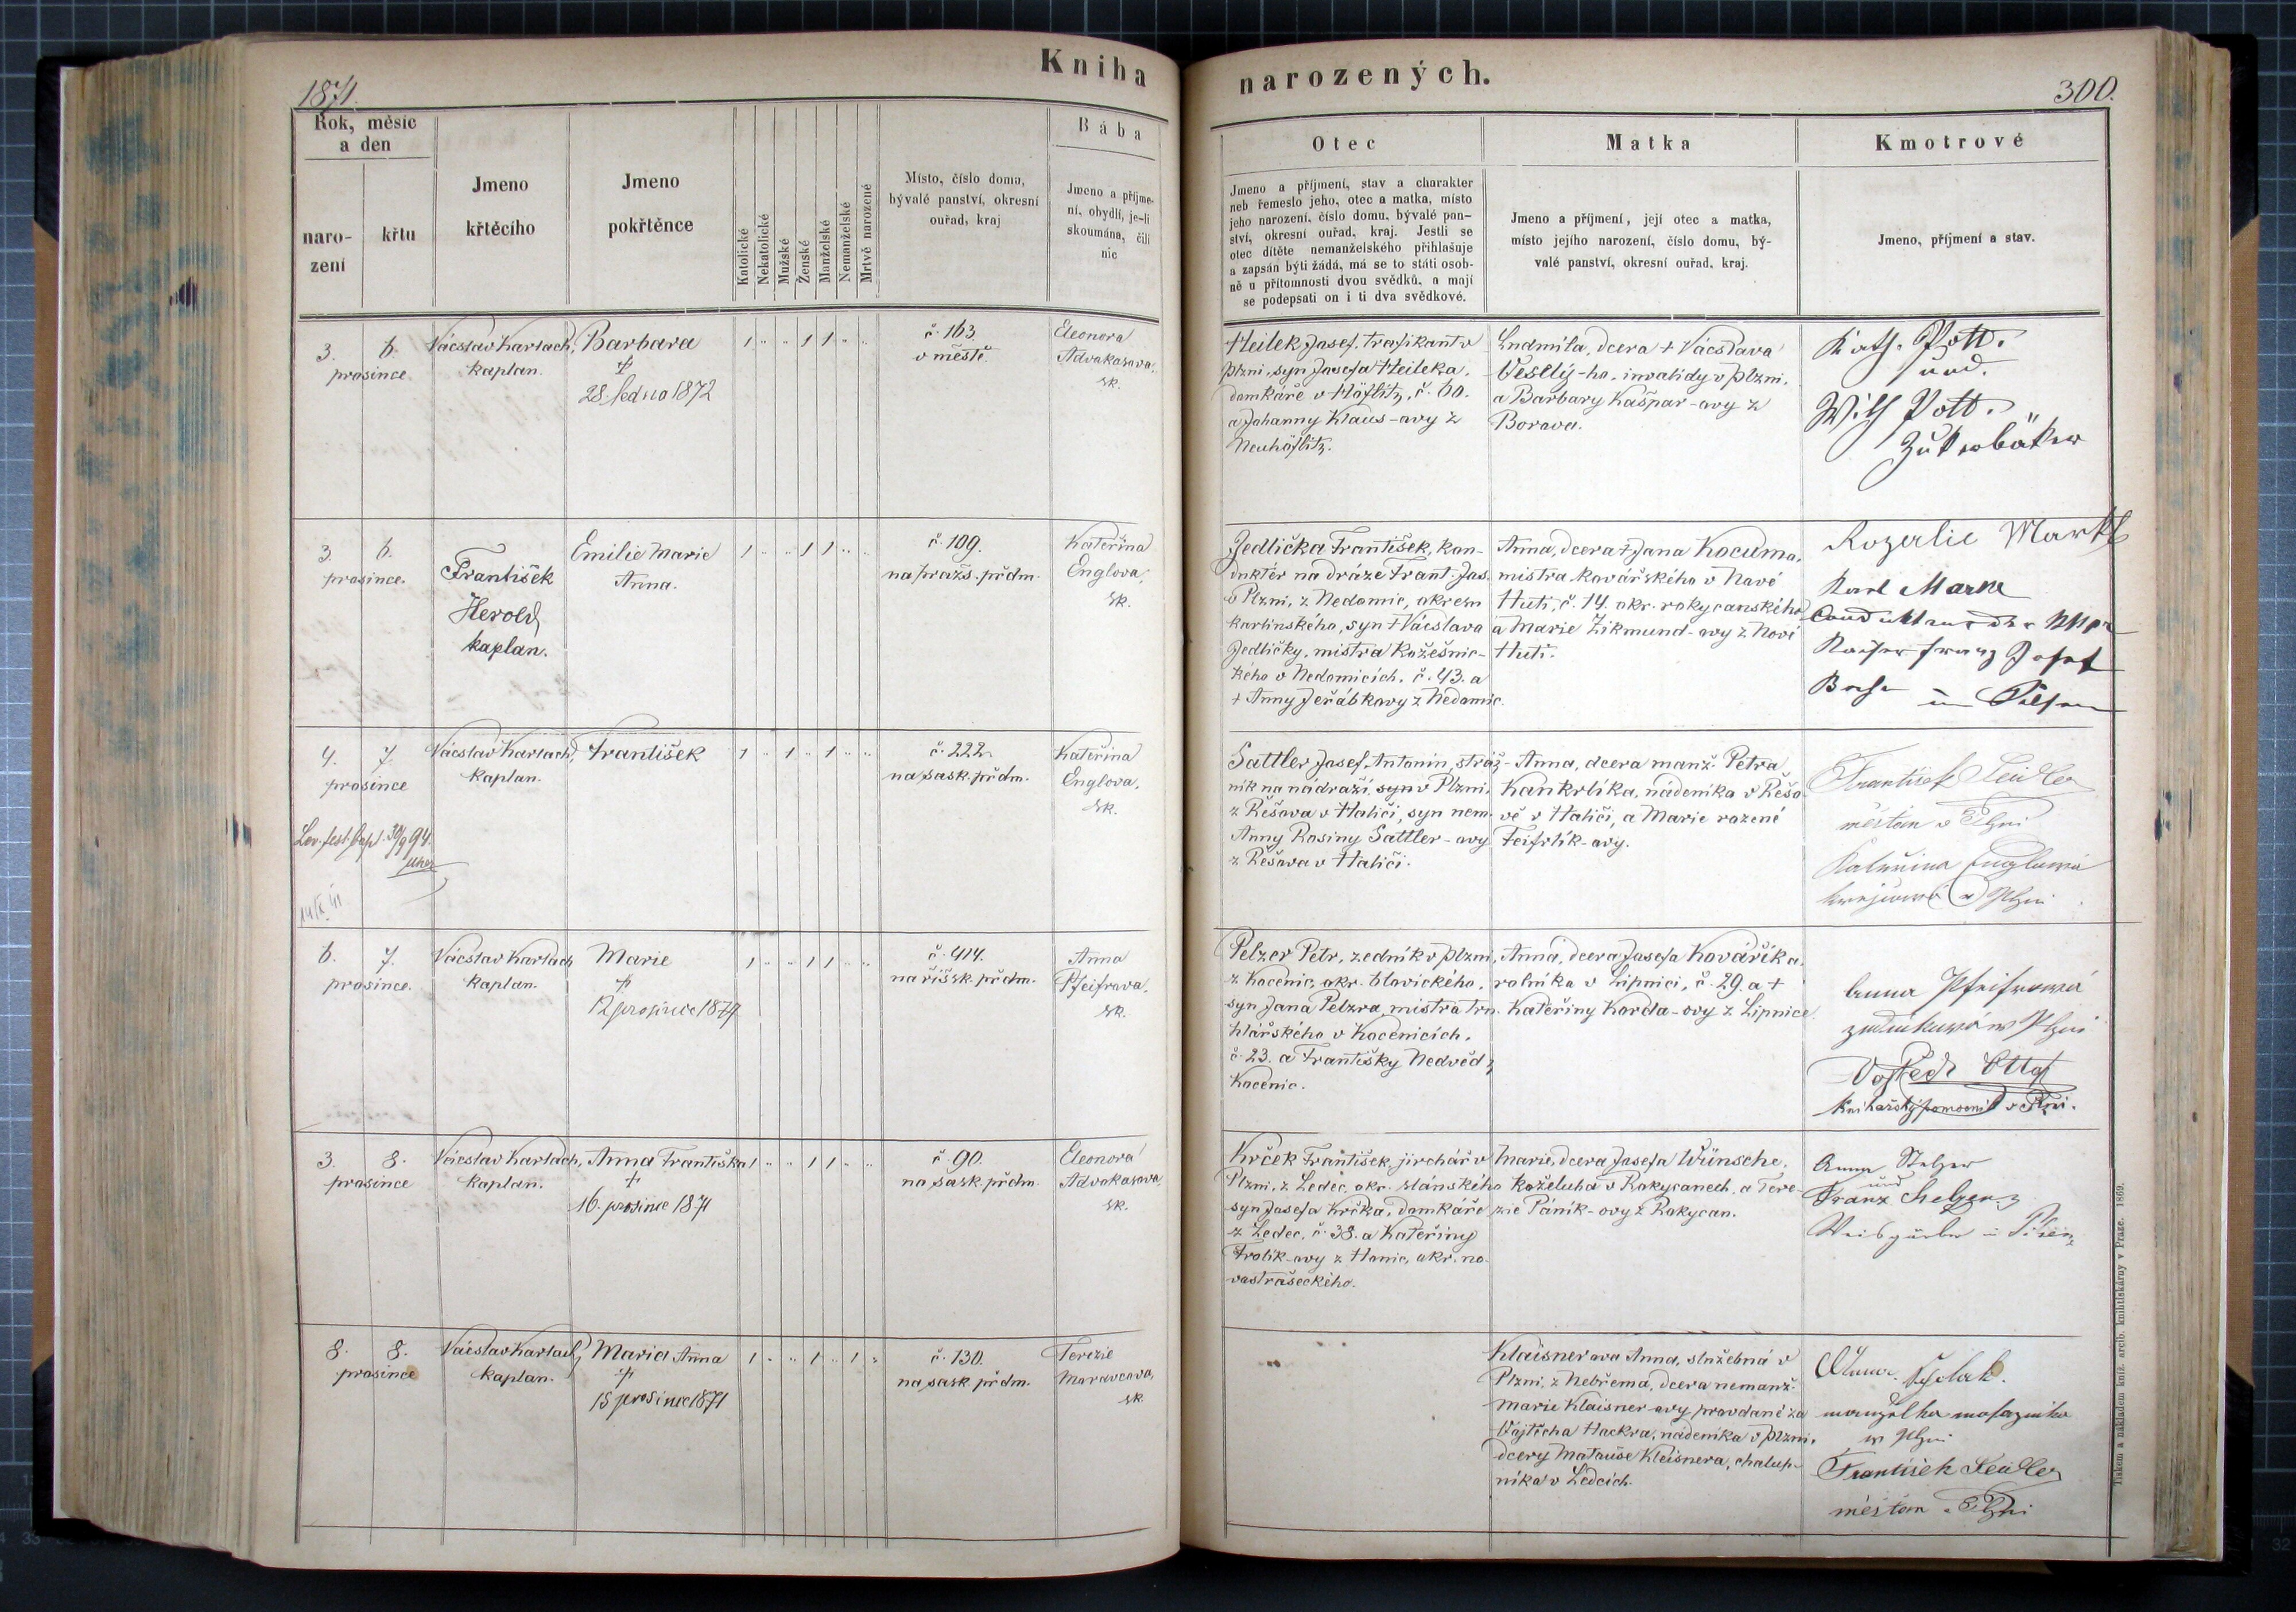 Kniha
narozených.
1871.
300.
Rok, měsíc
a den
naro-
zení
křtu
Jmeno
křtěcího
Jmeno
pokřtěnce
Katolické
Nekatolické
Mužské
Ženské
Manželské
Nemanželské
Mrtvě narozené
Místo, číslo domu,
bývalé panství, okresní
ouřad, kraj
Bába
Jmeno a příjme-
ní, obydlí, je-li
skoumána, čili
nic
Otec
Jmeno a příjmení, stav a charakter
neb řemeslo jeho, otec a matka, místo
jeho narození, číslo domu, bývalé pan-
ství, okresní ouřad, kraj. Jestli se
otec dítěte nemanželského přihlašuje
a zapsán býti žádá, má se to státi osob-
ně u přítomnosti dvou svědků, a mají
se podepsati on i ti dva svědkové.
Matka
Jmeno a příjmení, její otec a matka,
místo jejího narození, číslo domu, bý-
valé panství, okresní ouřad, kraj.
Kmotrové
Jmeno, příjmení a stav.
3. 6.
prosince
Vácslav Karlach,
kaplan.
Barbara
†
28. ledna 1872
1 „ „ 1 1 „ „
č. 163.
v městě.
Eleonora
Advokasova,
zk.
Heilek Josef, trafikant v
Plzni, syn Josefa Heileka,
domkáře v Höflitz, č. 60.
a Johanny Klaus-ovy z
Neuhöflitz.
Ludmila, dcera † Vácslava
Veselý-ho, invalidy v Plzni,
a Barbary Kašpar-ovy z
Borova.
Kath. Pott.
und.
Wilh Pott.
Zukerbäker
3. 6.
prosince.
František
Herold,
kaplan.
Emilie Marie
Anna.
1 „ „ 1 1 „ „
č. 109.
na pražs. předm.
Kateřina
Englova,
zk.
Jedlička František, kon-
duktér na dráze Frant. Jos.
v Plzni, z Nedomic, okresu
karlinského, syn † Vácslava
Jedličky, mistra kožešnic-
kého v Nedomicích, č. 43. a
† Anny Jeřábkovy z Nedomic.
Anna, dcera † Jana Kocuma,
mistra kovářského v Nové
Huti, č. 14. okr. rokycanského
a Marie Zikmund-ovy z Nové
Huti.
Rozalie Markl
Karl
Kaiser Franz Josef
in Pilsen
4. 7.
prosince
Vácslav Karlach,
kaplan.
František
1 „ 1 „ 1 „ „
č. 222.
na sask. předm.
Kateřina
Englova,
zk.
Sattler Josef Antonin, stráž-
ník na nádraží v Plzni,
z Řešova v Haliči, syn nem.
Anny Rosiny Sattler-ovy
z Řešova v Haliči.
Anna, dcera manž. Petra
Kankrlíka, nádeníka v Řešo-
vě v Haliči, a Marie rozené
Feifrlík-ovy.
František Seidler
měšťan v Plzni
Kateřina Englowá
w Plzni
6. 7.
prosince.
Vácslav Karlach
kaplan.
Marie
†
12 prosince 1871
1 „ „ 1 1 „ „
č. 414.
na říšsk. předm.
Anna
Pfeifrova,
zk.
Pelzer Petr, zedník v Plzni,
z Kocenic, okr. blovického,
syn Jana Pelzra, mistra tru-
hlářského v Kocenicích,
č. 23. a Františky Nedvěd z
Kocenic.
Anna, dcera Josefa Kováříka,
rolníka v Lipnici, č. 29. a †
Kateřiny Korda-ovy z Lipnice
Anna Pfeifrowá
w Plzni
Ottof
Knihařský pomocník v Plzni.
3. 8.
prosince
Vácslav Karlach,
kaplan.
Anna Františka
†
16. prosince 1871
1 „ „ 1 1 „ „
č. 90.
na sask. předm.
Eleonora
Advokasova,
zk.
Krček František, jirchář v
Plzni, z Ledec, okr. slánského
syn Josefa Krčka, domkáře
z Ledec, č. 38. a Kateřiny
Frolík-ovy z Honic, okr. no-
vostrašeckého.
Marie, dcera Josefa Wünsche,
koželuha v Rokycanech, a Tere-
zie Páník-ovy z Rokycan.
Anna Stelzer
und
Franz Stelzer
Weisgärber in Pilsen
8. 8.
prosince
Vácslav Karlach,
kaplan.
Maria Anna
†
15 prosince 1871
1 „ „ 1 „ 1 „
č. 130.
na sask. předm.
Terezie
Moravcova,
zk.
Klaisnerova Anna, služebná v
Plzni, z Nebřema, dcera nemanž.
Marie Klaisner-ovy provdané za
Vojtěcha Hackra, nádeníka v Plzni,
dcery Matouše Kleisnera, chalup-
níka v Ledcích.
manželka
w Plzni
František Seidler
měšťan v Plzni
Tiskem a nákladem kníž. arcib. knihtiskárny v Praze. 1869.